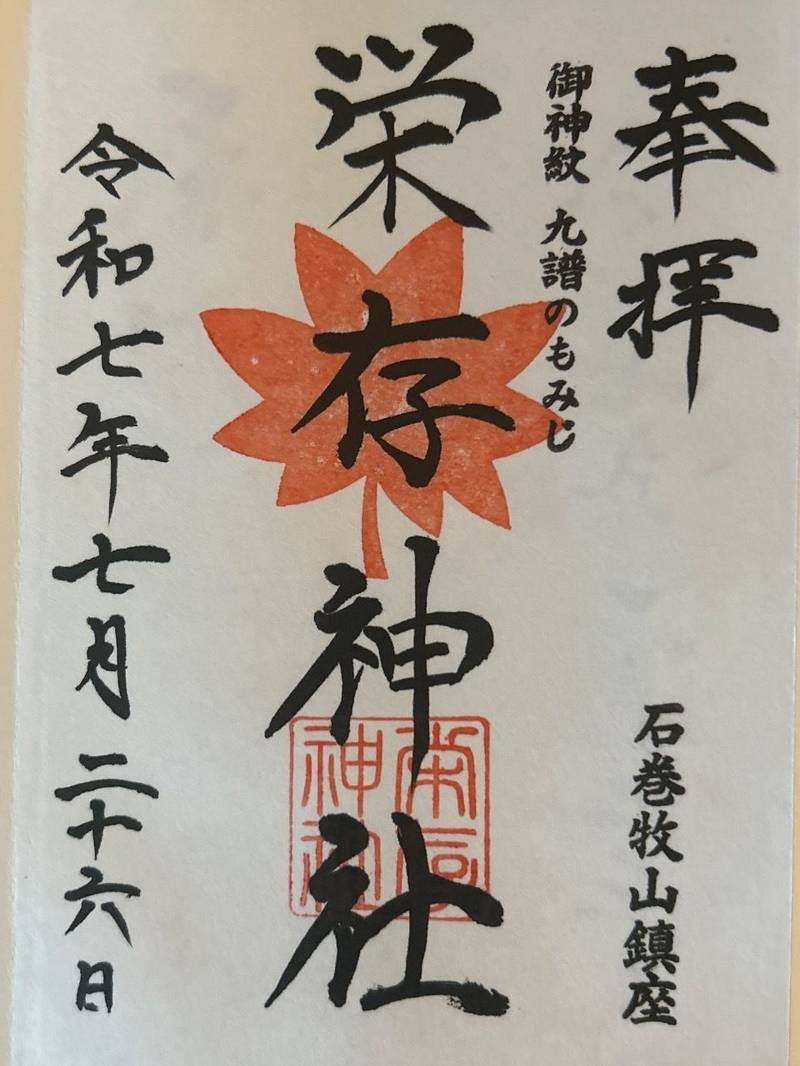 奉拝
石巻牧山鎮座
御神紋 九譜のもみじ
栄存神社
令和七年七月二十六日